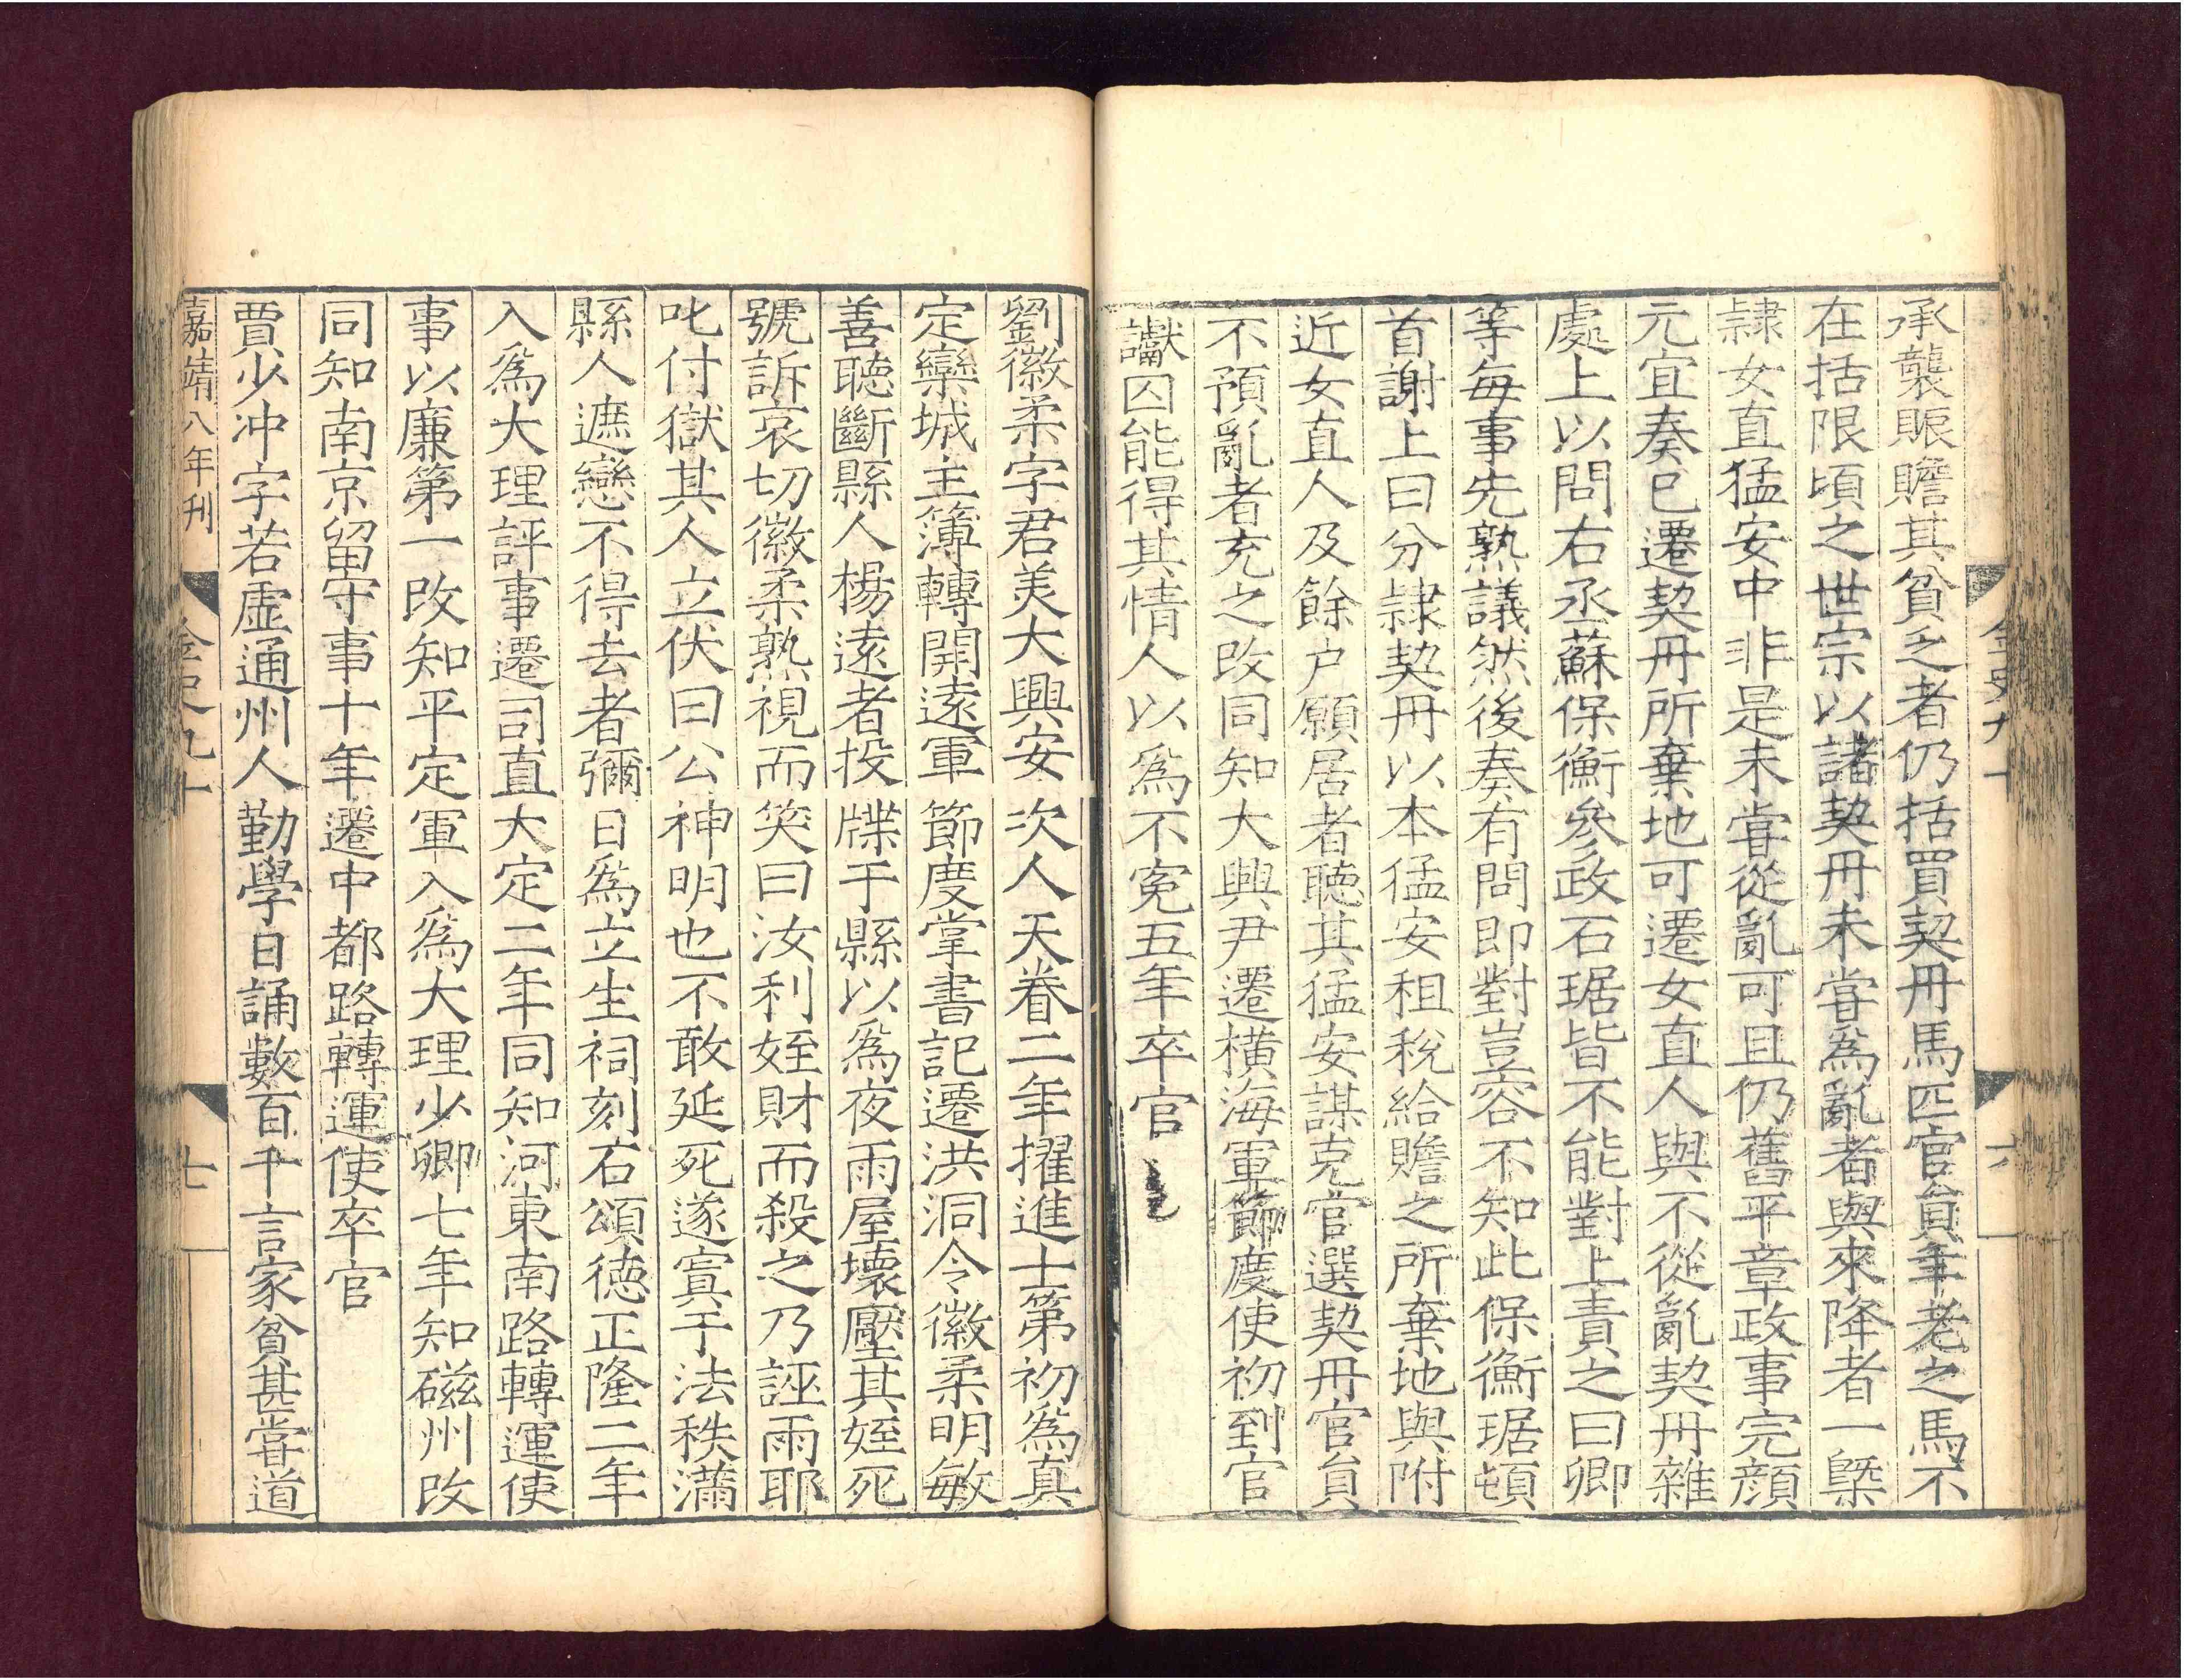 承襲賑贍其貧乏者仍括買契丹馬匹官員年老之馬不
在括限頃之世宗以諸契丹未嘗為亂者與來降者一槩
隸女直猛安中非是未嘗從亂可且仍舊平章政事完顔
元宜奏已遷契丹所棄地可遷女直人與不從亂契丹雜
處上以問右丞蘇保衡參政石琚皆不能對上責之曰卿
等每事先熟議然後奏有問即對豈容不知此保衡琚頓
首謝上曰分隸契丹以本猛安租稅給贍之所棄地與附
近女直人及餘户願居者聽其猛安謀克官選契丹官員
不預亂者充之改同知大興尹遷橫海軍節度使初到官
讞囚能得其情人以為不寃五年卒官
金史九十
六
劉徽柔字君美大興安次人天眷二年擢進士第初為真
定欒城主簿轉開遠軍節度掌書記遷洪洞令徽柔明敏
善聽斷縣人楊遠者投牒于縣以為夜雨屋壞壓其姪死
號訴哀切徽柔熟視而笑曰汝利姪財而殺之乃誣雨耶
叱付獄其人立伏曰公神明也不敢延死遂寘于法秩滿
縣人遮戀不得去者彌日為立生祠刻石頌德正隆二年
入為大理評事遷司直大定二年同知河東南路轉運使
事以廉第一改知平定軍入為大理少卿七年知磁州改
同知南京留守事十年遷中都路轉運使卒官
賈少冲字若虛通州人勤學日誦數百千言家貧甚嘗道
嘉靖八年刊
金史九十
七